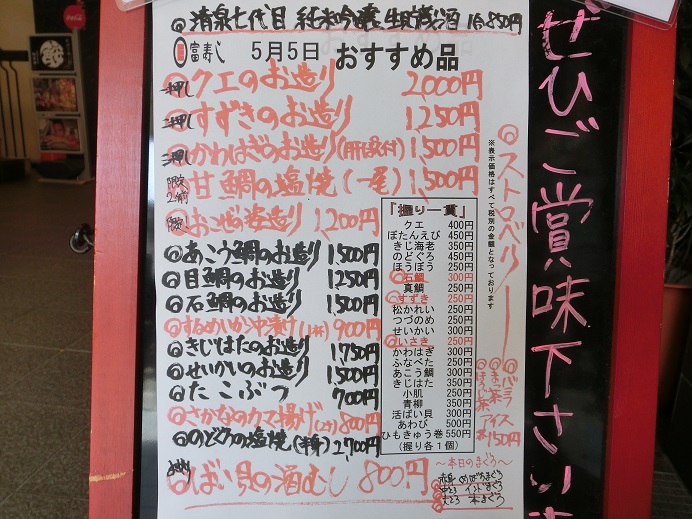 ◎清泉七代目 純米吟醸 生貯蔵酒 1合850円
富寿し 5月5日 おすすめ品
一押し クエのお造り 2,000円
二押し すずきのお造り 1,250円
三押し かわはぎのお造り(肝ぽん付) 1,500円
限定2前 甘鯛の塩焼(一尾) 1,500円
おこぜの姿造り 1,200円
◎あこう鯛のお造り 1,500円
◎目鯛のお造り 1,250円
◎石鯛のお造り 1,500円
◎するめいか沖漬け 900円
◎きじはたのお造り 1,750円
◎せいかいのお造り 1,500円
◎たこぶつ 700円
◎さかなのカマ揚げ 800円
◎のどぐろの塩焼(半身) 2,700円
ばい貝の酒むし 800円
「握り一貫」
クエ 400円
ぼたんえび 450円
きじ海老 350円
のどぐろ 450円
ほうぼう 250円
◎石鯛 300円
真鯛 250円
◎すずき 250円
松かれい 250円
つづのめ 250円
せいかい 300円
◎いさき 250円
かわはぎ 300円
ふなべた 250円
あこう鯛 300円
きじはた 350円
小肌 250円
青柳 350円
活ばい貝 300円
あわび 500円
ひもきゅう巻 550円
(握り各1個)
※表示価格はすべて税別の金額となっております
◎ストロベリー
◎バニラ
◎まっ茶
◎ほうじ茶
アイス
各150円
〜本日のまぐろ〜
赤身 めばちまぐろ
中とろ インドまぐろ
大とろ 本まぐろ
ぜひご賞味下さい